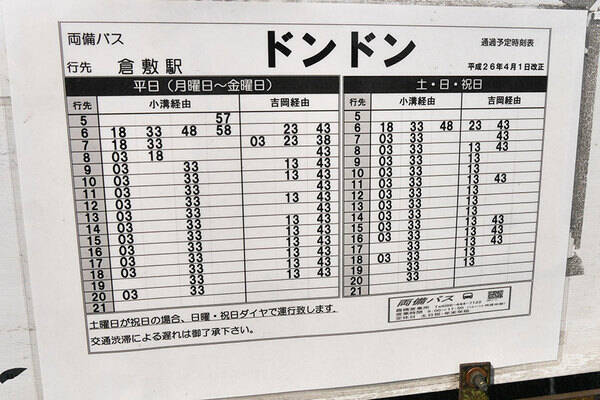 両備バス
ドンドン
通過予定時刻表
行先 倉敷駅
平成26年4月1日改正
平日（月曜日～金曜日）
行先 小溝経由 吉岡経由
5 57
6 18 33 48 58 23 43
7 18 33 03 23 38
8 03 18 43
9 33 13 43
10 03 33 13 43
11 03 33 43
12 03 33 13 43
13 03 33 43
14 03 33 13 43
15 03 33 13 43
16 03 33 13 43
17 03 33 13 43
18 03 33 13 43
19 33 43
20 03 33
21
土・日・祝日
行先 小溝経由 吉岡経由
5
6 18 33 48 23 43
7 33 43
8 03 33 13 43
9 03 33 13
10 03 33 13
11 03 33 13 43
12 03 33 13
13 03 33 13
14 03 33 13 43
15 03 33 13 43
16 03 33 13 43
17 33 13
18 03 33 13
19 33
20 33
21
土曜日が祝日の場合、日曜・祝日ダイヤで運行致します。
交通渋滞による遅れは御了承下さい。
両備バス
営業時間
定休日 土日祝・年末年始